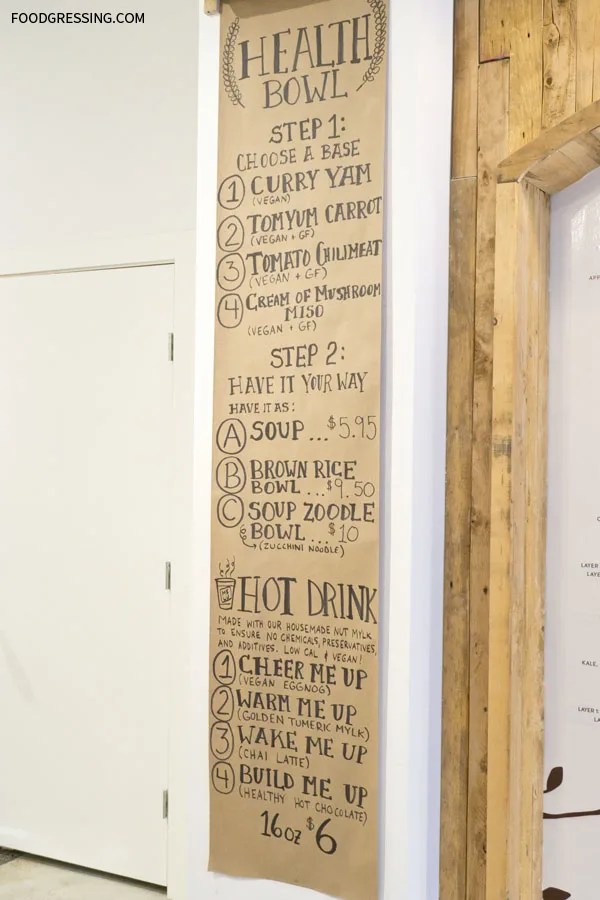 FOODGRESSING.COM
HEALTH
BOWL
STEP 1:
CHOOSE A BASE
1 CURRY YAM
(VEGAN)
2 TOMYUM CARROT
(VEGAN + GF)
3 TOMATO CHILIMEAT
(VEGAN + GF)
4 CREAM OF MUSHROOM
MISO
(VEGAN + GF)
STEP 2:
HAVE IT YOUR WAY
HAVE IT AS:
A SOUP ... $5.95
B BROWN RICE
BOWL ... $9.50
C SOUP ZOODLE
BOWL ... $10
(ZUCCHINI NOODLE)
HOT DRINK
MADE WITH OUR HOUSEMADE NUT MYLK
TO ENSURE NO CHEMICALS, PRESERVATIVES,
AND ADDITIVES. LOW CAL + VEGAN!
1 CHEER ME UP
(VEGAN EGGNOG)
2 WARM ME UP
(GOLDEN TUMERIC MYLK)
3 WAKE ME UP
(CHAI LATTE)
4 BUILD ME UP
(HEALTHY HOT CHOCOLATE)
16oz $6
LAYER
KALE,
LAYER 1: